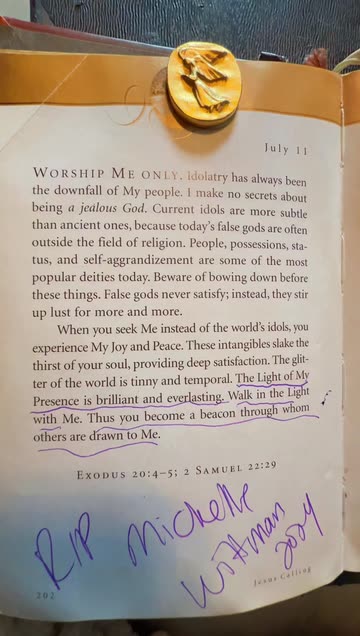 July 11
WORSHIP ME ONLY. Idolatry has always been
the downfall of My people. I make no secrets about
being a jealous God. Current idols are more subtle
than ancient ones, because today's false gods are often
outside the field of religion. People, possessions, sta-
tus, and self-aggrandizement are some of the most
popular deities today. Beware of bowing down before
these things. False gods never satisfy; instead, they stir
up lust for more and more.
When you seek Me instead of the world's idols, you
experience My Joy and Peace. These intangibles slake the
thirst of your soul, providing deep satisfaction. The glit-
ter of the world is tinny and temporal. The Light of My
Presence is brilliant and everlasting. Walk in the Light
with Me. Thus you become a beacon through whom
others are drawn to Me.
EXODUS 20:4–5; 2 SAMUEL 22:29
RIP Michelle
Wittman 2024
202
Jesus Calling